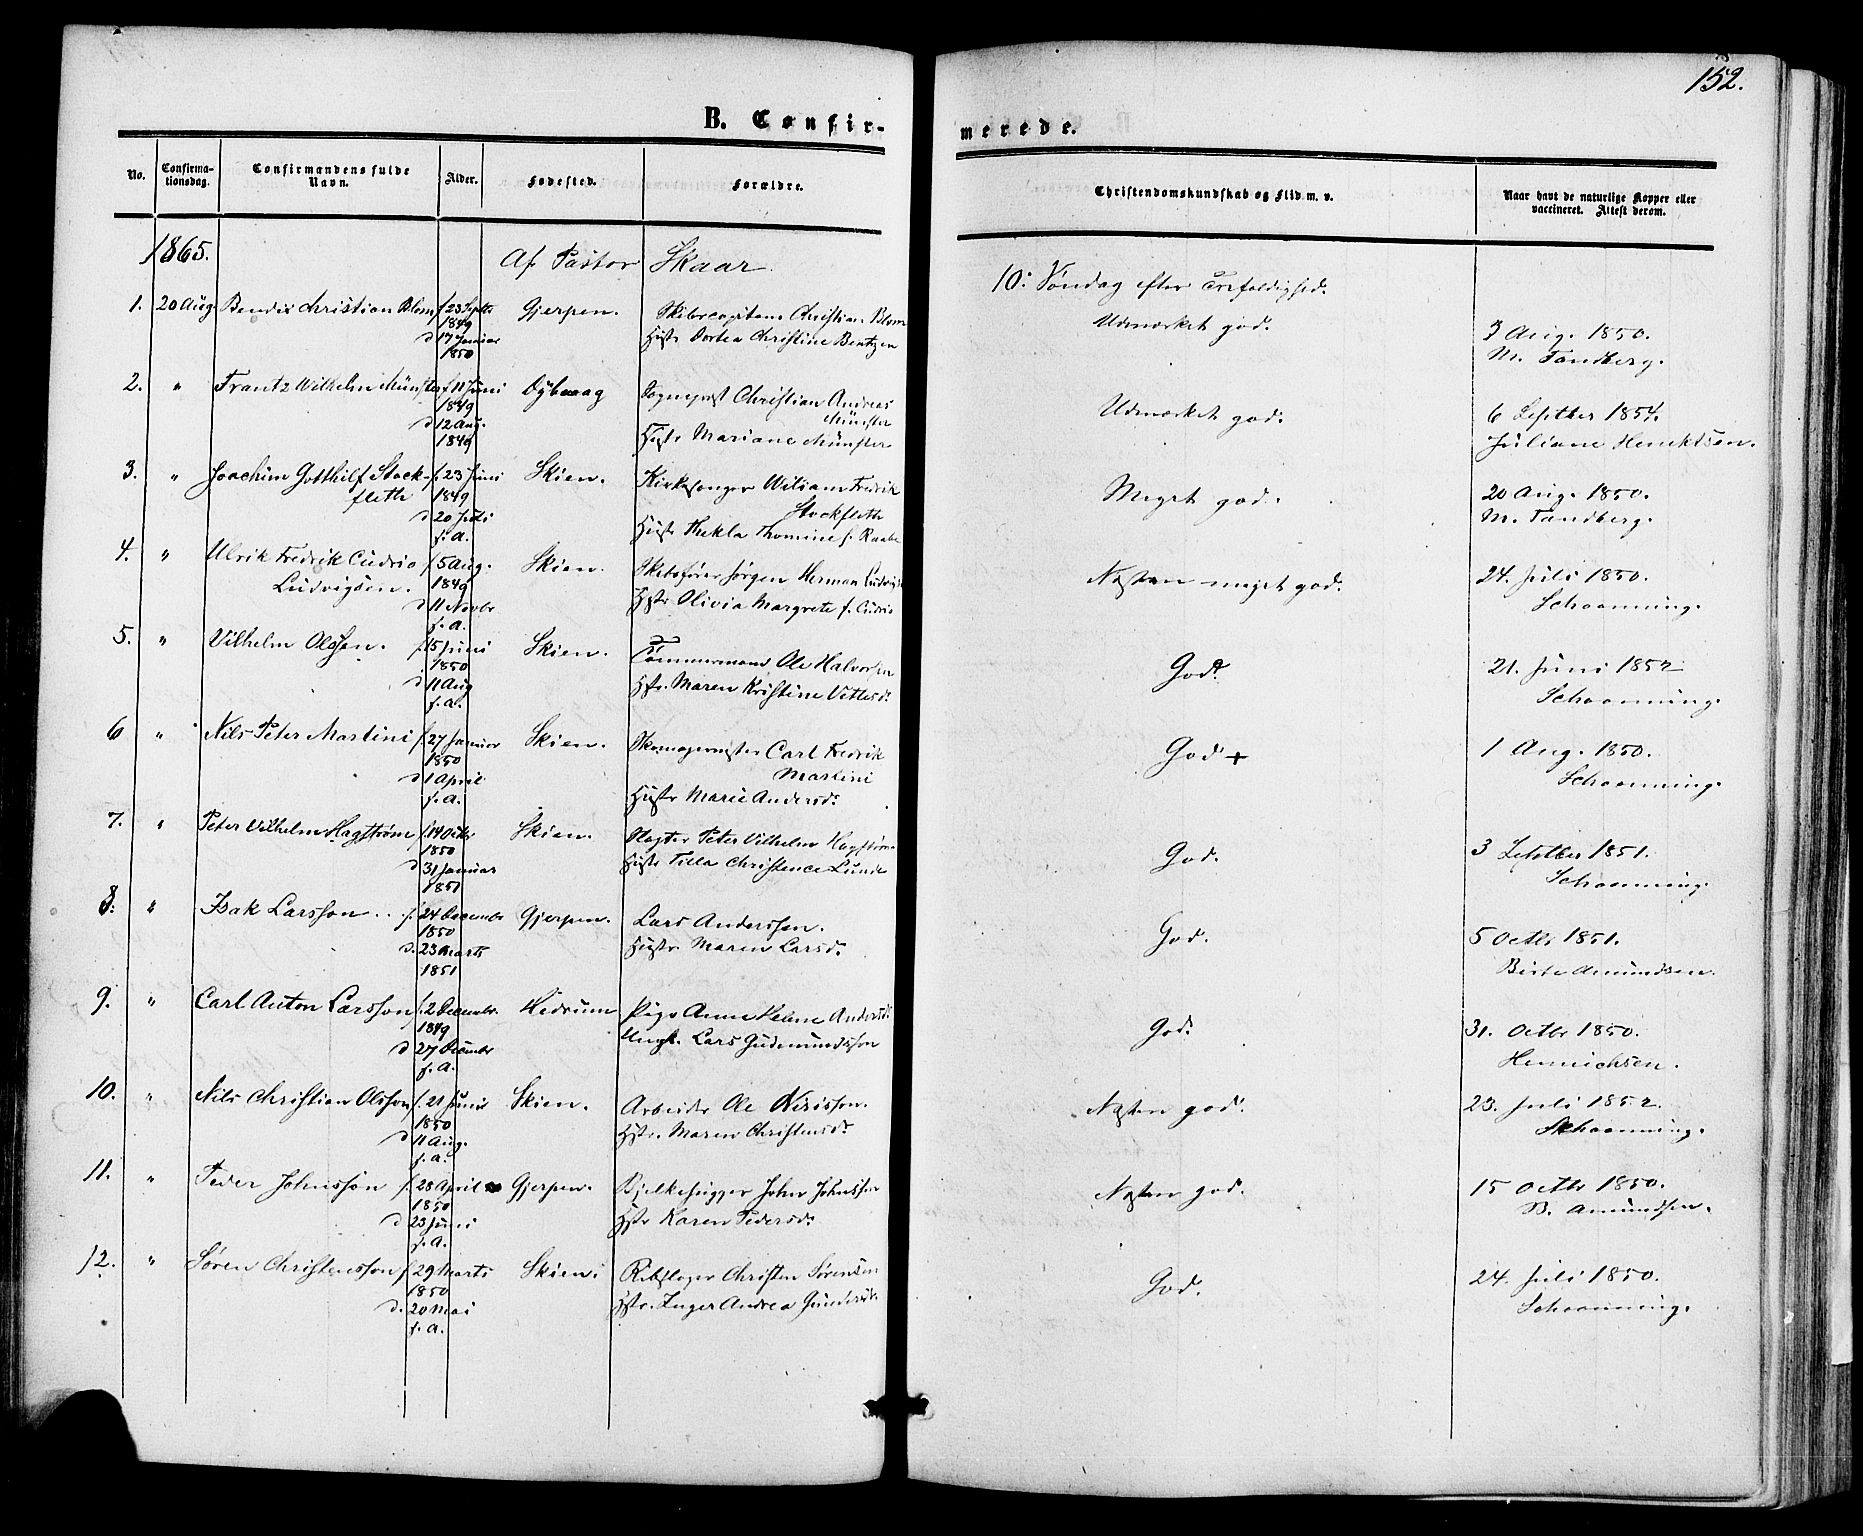 152.
B. Confir-
merede.
No.
Confirma-
tionsdag.
Confirmandens fulde
Navn.
Alder.
Fødested.
Forældre.
Christendomskundskab og Flid m. v.
Naar havt de naturlige Kopper eller
vaccineret. Attest derom.
1865.
Af Pastor Skaar.
10: Søndag efter Trefoldighed.
1. 20 Aug Bendix Christian Blom f. 23 Septbr Gjerpen. Skibscapitain Christian Blom
1849
d 17 Januar Hustr Dortea Christine Bentzen
1850
Udmærket god.
3 Aug. 1850.
M. Tandberg.
2. " Frantz Wilhelm Münster f. 11 Juni Dybvaag Sogneprest Christian Andreas
1849 Münster
d 12 Aug.
1849 Hustr Mariane Münster
Udmærket god.
6 Septber 1854.
Juliane Henriksen.
3. " Joachim Gotthilf Stock- f. 23 Juni Skien. Kirkesanger Wiliam Fredrik
fleth 1849 Stockfleth
d 20 Juli Hustr Thekla Thomine f. Raabe
f. a.
Meget god.
20 Aug. 1850.
M. Tandberg.
4. " Ulrik Fredrik Cudrio f 5 Aug. Skien. Skibsfører Jørgen Herman Ludvigs
Ludvigsen. 1849
d 11 Novbr Hstr Olivia Margrete f. Cudrio
f. a.
Næsten meget god.
24. Juli 1850.
Schoanning.
5. " Vilhelm Olssen. f. 15 Juni Skien. Tømmermand Ole Halvorsen
1850
d 11 Aug Hstr. Maren Kristine Vettesd.
f. a.
God.
21. Juni 1852
Schoanning.
6 " Nils Peter Martini f. 27 Januar Skien. Skomagermester Carl Fredrik
1850 Martini
d 1 April
f. a. Hustr Marie Andersd.
God +
1 Aug. 1850.
Schoanning.
7. " Peter Vilhelm Hagstrøm f. 14 Octbr Skien. Slagter Peter Vilhelm Hagstrøm
1850
d 31 Januar Hustr Tilla Christence Lunde
1851
God.
3 Septber 1851.
Schoanning.
8. " Isak Larsson f. 24 December Gjerpen. Lars Anderssen.
1850
d. 23 Marts Hustr. Maren Larsd.
1851
God.
5 Octbr 1851.
Birte Amundsen.
9. " Carl Anton Larsson f. 2 Decembr. Hedrum Pige Anne Helene Andersd.
1849
d 27 Decembr Ungk. Lars Gudmundsson
f. a.
God.
31. Octbr 1850.
Henrichsen.
10. " Nils Christian Olsson f. 21 Juni Skien. Arbeider Ole Nirisson.
1850
d 11 Aug. Hstr. Maren Christensd.
f. a.
Næsten god.
23. Juli 1852.
Schoanning.
11. " Peder Johnsson f. 28 April Gjerpen. Bjelkehugger John Johnssen
1850
d 23 Juni Hstr Karen Pedersd.
f. a.
Næsten god.
15 Octbr 1850.
B. Amundsen.
12. " Søren Christensson f 29 Marts Skien. Rebslager Christen Sørensen
1850
d. 20 Mai Hstr. Inger Andrea Gundersd.
f. a.
God.
24. Juli 1850.
Schoanning.